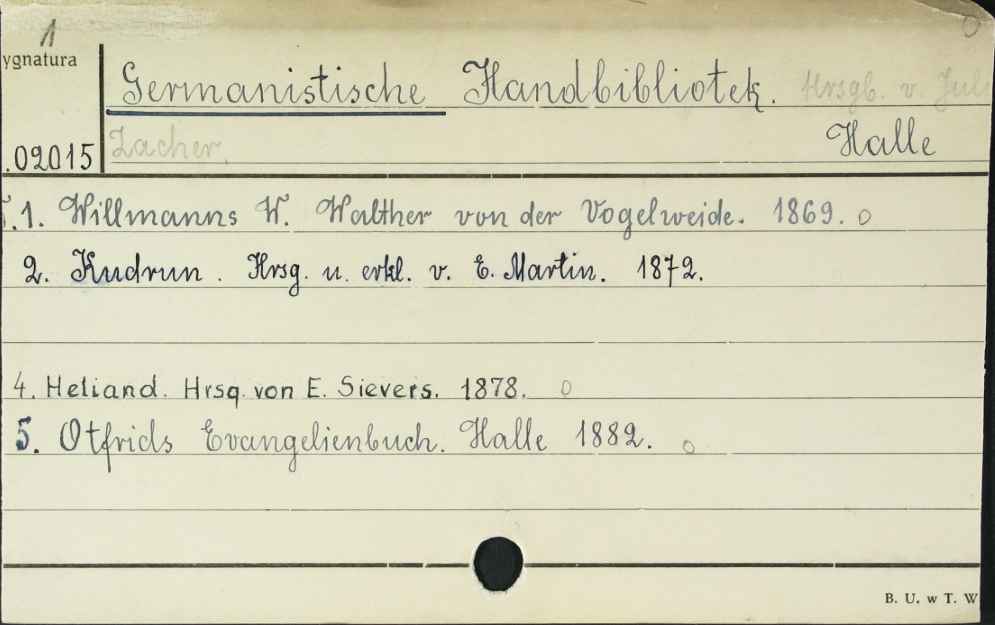 1
ygnatura
Germanistische Handbibliotek. Hrsgb. v. Jul
.02015 Zacher. Halle
T.1. Willmanns W. Walther von der Vogelweide. 1869. o
2. Kudrun. Hrsg. u. erkl. v. E. Martin. 1872.
4. Heliand. Hrsg. von E. Sievers. 1878. o
5. Otfrids Evangelienbuch. Halle 1882. o
B. U. w T. W